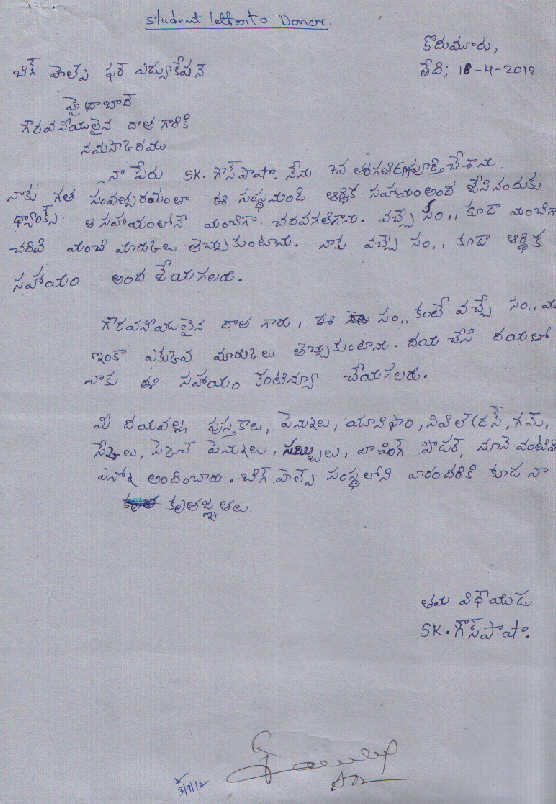 student letter to Donor.
కొరుమూరు,
తేది; 18-4-2019
బిగ్ హెల్ప్ ఫర్ ఎడ్యుకేషన్
హైదాబాద్
గౌరవనీయులైన దాత గారికి
నమస్కారము
నా పేరు SK. గౌస్‌పాషా. నేను 7వ తరగతి పూర్తి చేశాను.
నాకు గత సంవత్సరముగా ఈ సంస్థనుండి ఆర్థిక సహాయం అంద చేసినందుకు
థ్యాంక్స్. ఆ సహాయంలోనే మంచిగా చదవగలిగాను. వచ్చే సం,, కూడా మంచిగా
చదివి మంచి మార్కులు తెచ్చుకుంటాను. నాకు వచ్చే సం,, కూడా ఆర్థిక
సహాయం అంద చేయగలరు.
గౌరవనీయులైన దాత గారు, ఈ సం,, కంటే వచ్చే సం,,
ఇంకా ఎక్కువ మార్కులు తెచ్చుకుంటాను. దయ చేసి దయలో
నాకు ఈ సహాయం కంటిన్యూ చేయగలరు.
మీ దయవల్ల పుస్తకాలు, పెన్నులు, యూనిఫాం, గమ్,
స్కేలు, స్కెచ్ పెన్నులు, సబ్బులు, వాషింగ్ పౌడర్, నూనె వంటివి
ఎన్నో అందించారు. బిగ్ హెల్ప్ సంస్థలోని వారందరికి కూడ నా
కృతజ్ఞతలు
తమ విధేయుడు
SK. గౌస్‌పాషా.